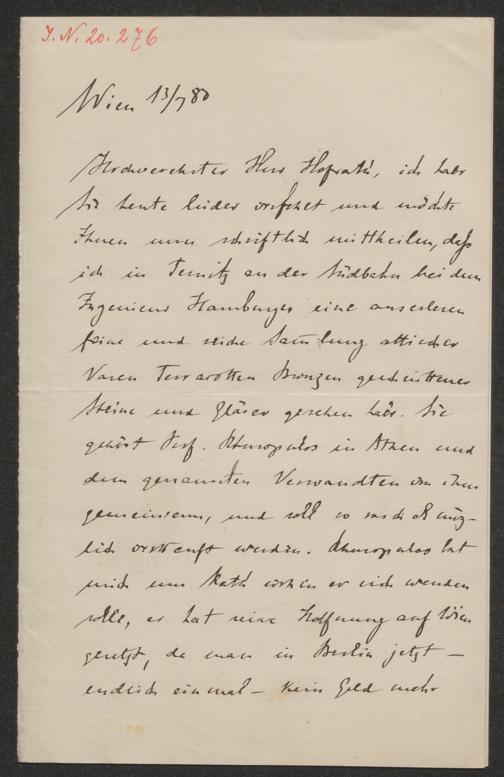 J. N. 20.276
Wien 13/7 80
Hochverehrter Herr Hofrath, ich habe
Sie heute leider verfehlt und möchte
Ihnen nun schriftlich mittheilen, daß
ich in Ternitz an der Südbahn bei dem
Ingenieur Hamburger eine auserlesen
feine und reiche Sammlung attischer
Vasen Terracotten Bronzen geschnittener
Steine und Gläser gesehen habe. Sie
gehört Prof. Rhusopulos in Athen und
dem genannten Verwandten von ihm
gemeinsam, und soll so rasch als mög-
lich verkauft werden. Rhusopulos bat
mich um Rath wohin er sich wenden
solle, er hat seine Hoffnung auf Wien
gesetzt, da man in Berlin jetzt —
endlich einmal — kein Geld mehr